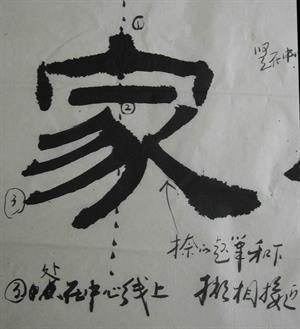 ①
家
②
③
捺的起笔和下
撇相接近
③ 处在中心线上